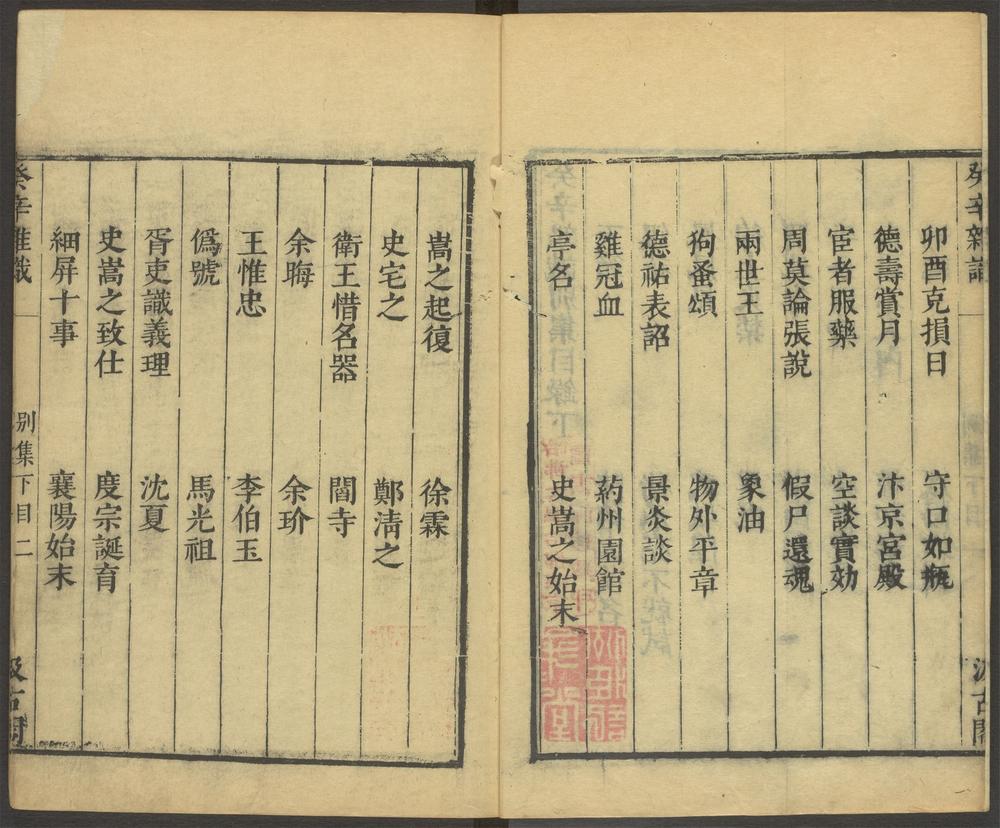 癸辛雜識
汲古閣
卯酉克損日　守口如瓶
德壽賞月　汴京宮殿
宦者服藥　空談實効
周莫論張說　假尸還魂
兩世王　象油
狗蚤頌　物外平章
德祐表詔　景炎談
雞冠血　葯州園館
亭名　史嵩之始末
嵩之起復　徐霖
史宅之　鄭淸之
衛王惜名器　閻寺
余晦　余玠
王惟忠　李伯玉
僞號　馬光祖
胥吏識義理　沈夏
史嵩之致仕　度宗誕育
細屏十事　襄陽始末
癸辛雜識
別集下目　二
汲古閣